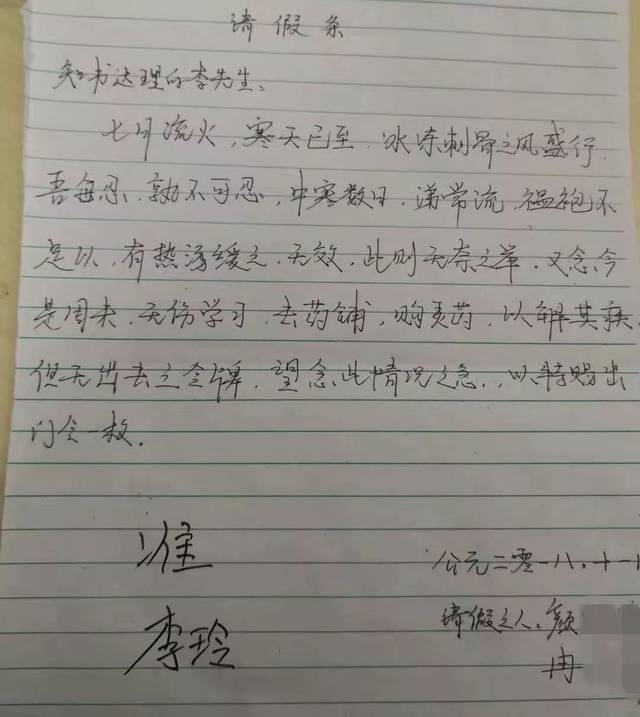 请假条
知书达理的李先生:
七月流火,寒天已至,冰冻刺骨之风盛行.
吾每忍,孰不可忍,中寒数日,涕常流,褞袍不
足以,有热汤缓之,无效,此则无奈之举,又念,今
是周末,无伤学习,去药铺,购灵药,以解其疾,
但无出去之令牌,望念此情况之急,以特赐出
门令一枚.
准
公元二零一八.十一
李玲
请假之人:颜
冉